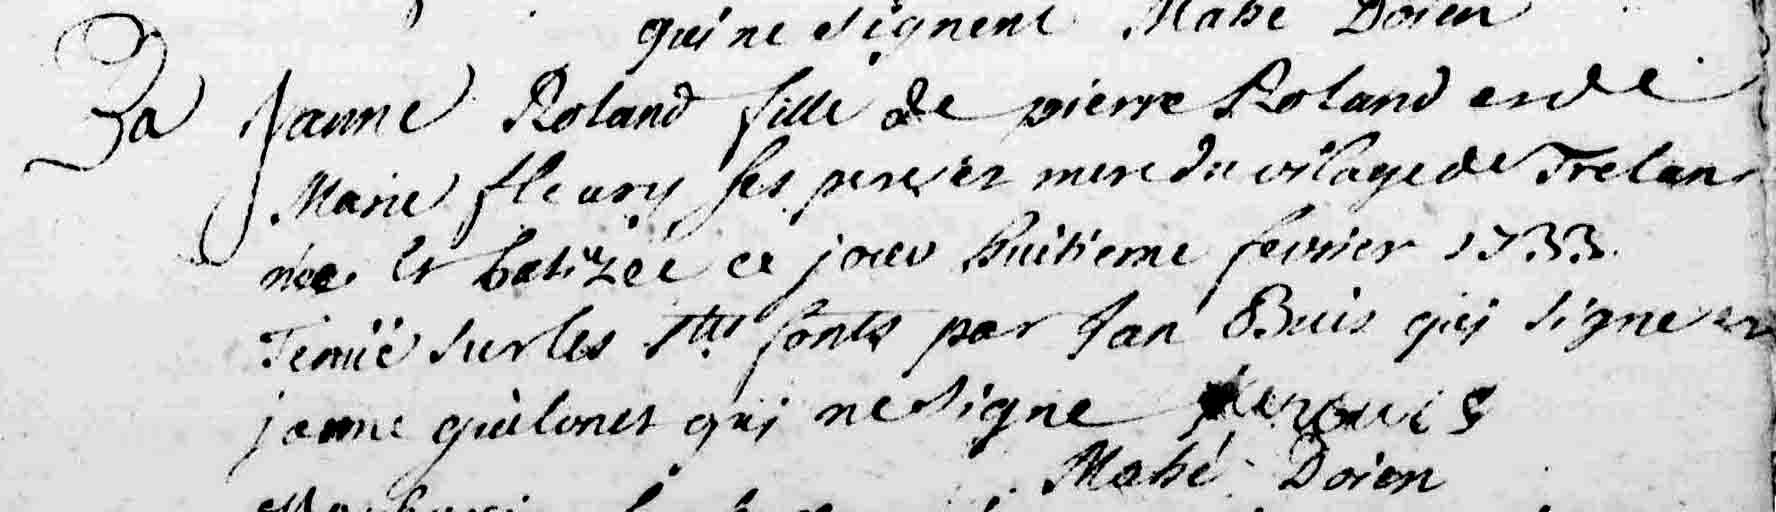 qui ne signent Mahé Doien
Ba Janne Roland fille de pierre Roland et de
Marie fleury ses pere et mere du vilage de Trelan
née et batizée ce jour huitieme fevrier 1733
Tenüe sur les Stts fonts par Jan Buis qui signe et
janne guilonet qui ne signe
Mahé Doien